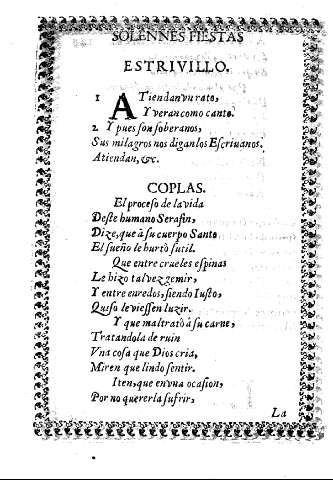 SOLENNES FIESTAS
ESTRIVILLO.
1 ATiendan vn rato,
Y veran como canto.
2. Y pues son soberanos,
Sus milagros nos digan los Escriuanos.
Atiendan, &c.
COPLAS.
El proceso de la vida
Deste humano Serafin,
Dize, que à su cuerpo Santo
El sueño le hurtò sutil.
Que entre crueles espinas
Le hizo tal vez gemir,
Y entre enredos, siendo Iusto,
Quiso le viessen luzir.
Y que maltratò à su carne,
Tratandola de ruin
Vna cosa que Dios cria,
Miren que lindo sentir.
Iten, que en vna ocasion,
Por no quererla sufrir,
La